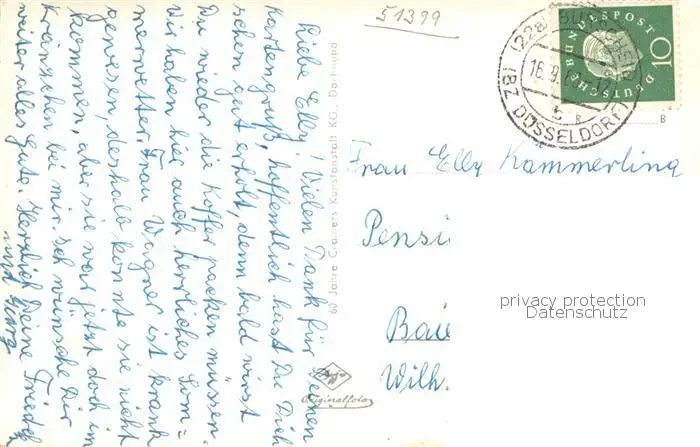 51399
Liebe Elly! Vielen Dank für Deinen
Kartengruß, hoffentlich hast Du Dich
schon gut erholt, denn bald wirst
Du wieder die Koffer packen müssen.
Wir haben hier auch herrliches Som=
merwetter. Frau Wagner ist krank
gewesen, deshalb konnte sie nicht
kommen, aber sie war jetzt doch im
Kränzchen bei mir. Ich wünsche Dir
weiter alles Gute. Herzlich Deine Friedel
und
60 Jahre Cramers Kunstanstalt KG. Dortmund
Agfa
Originalfoto
(22a)
16.9.
(BZ DÜSSELDORF)
DEUTSCHE BUNDESPOST
10
B
Frau Elly Kammerling
Pensi
Baie
Wilh.
privacy protection
Datenschutz